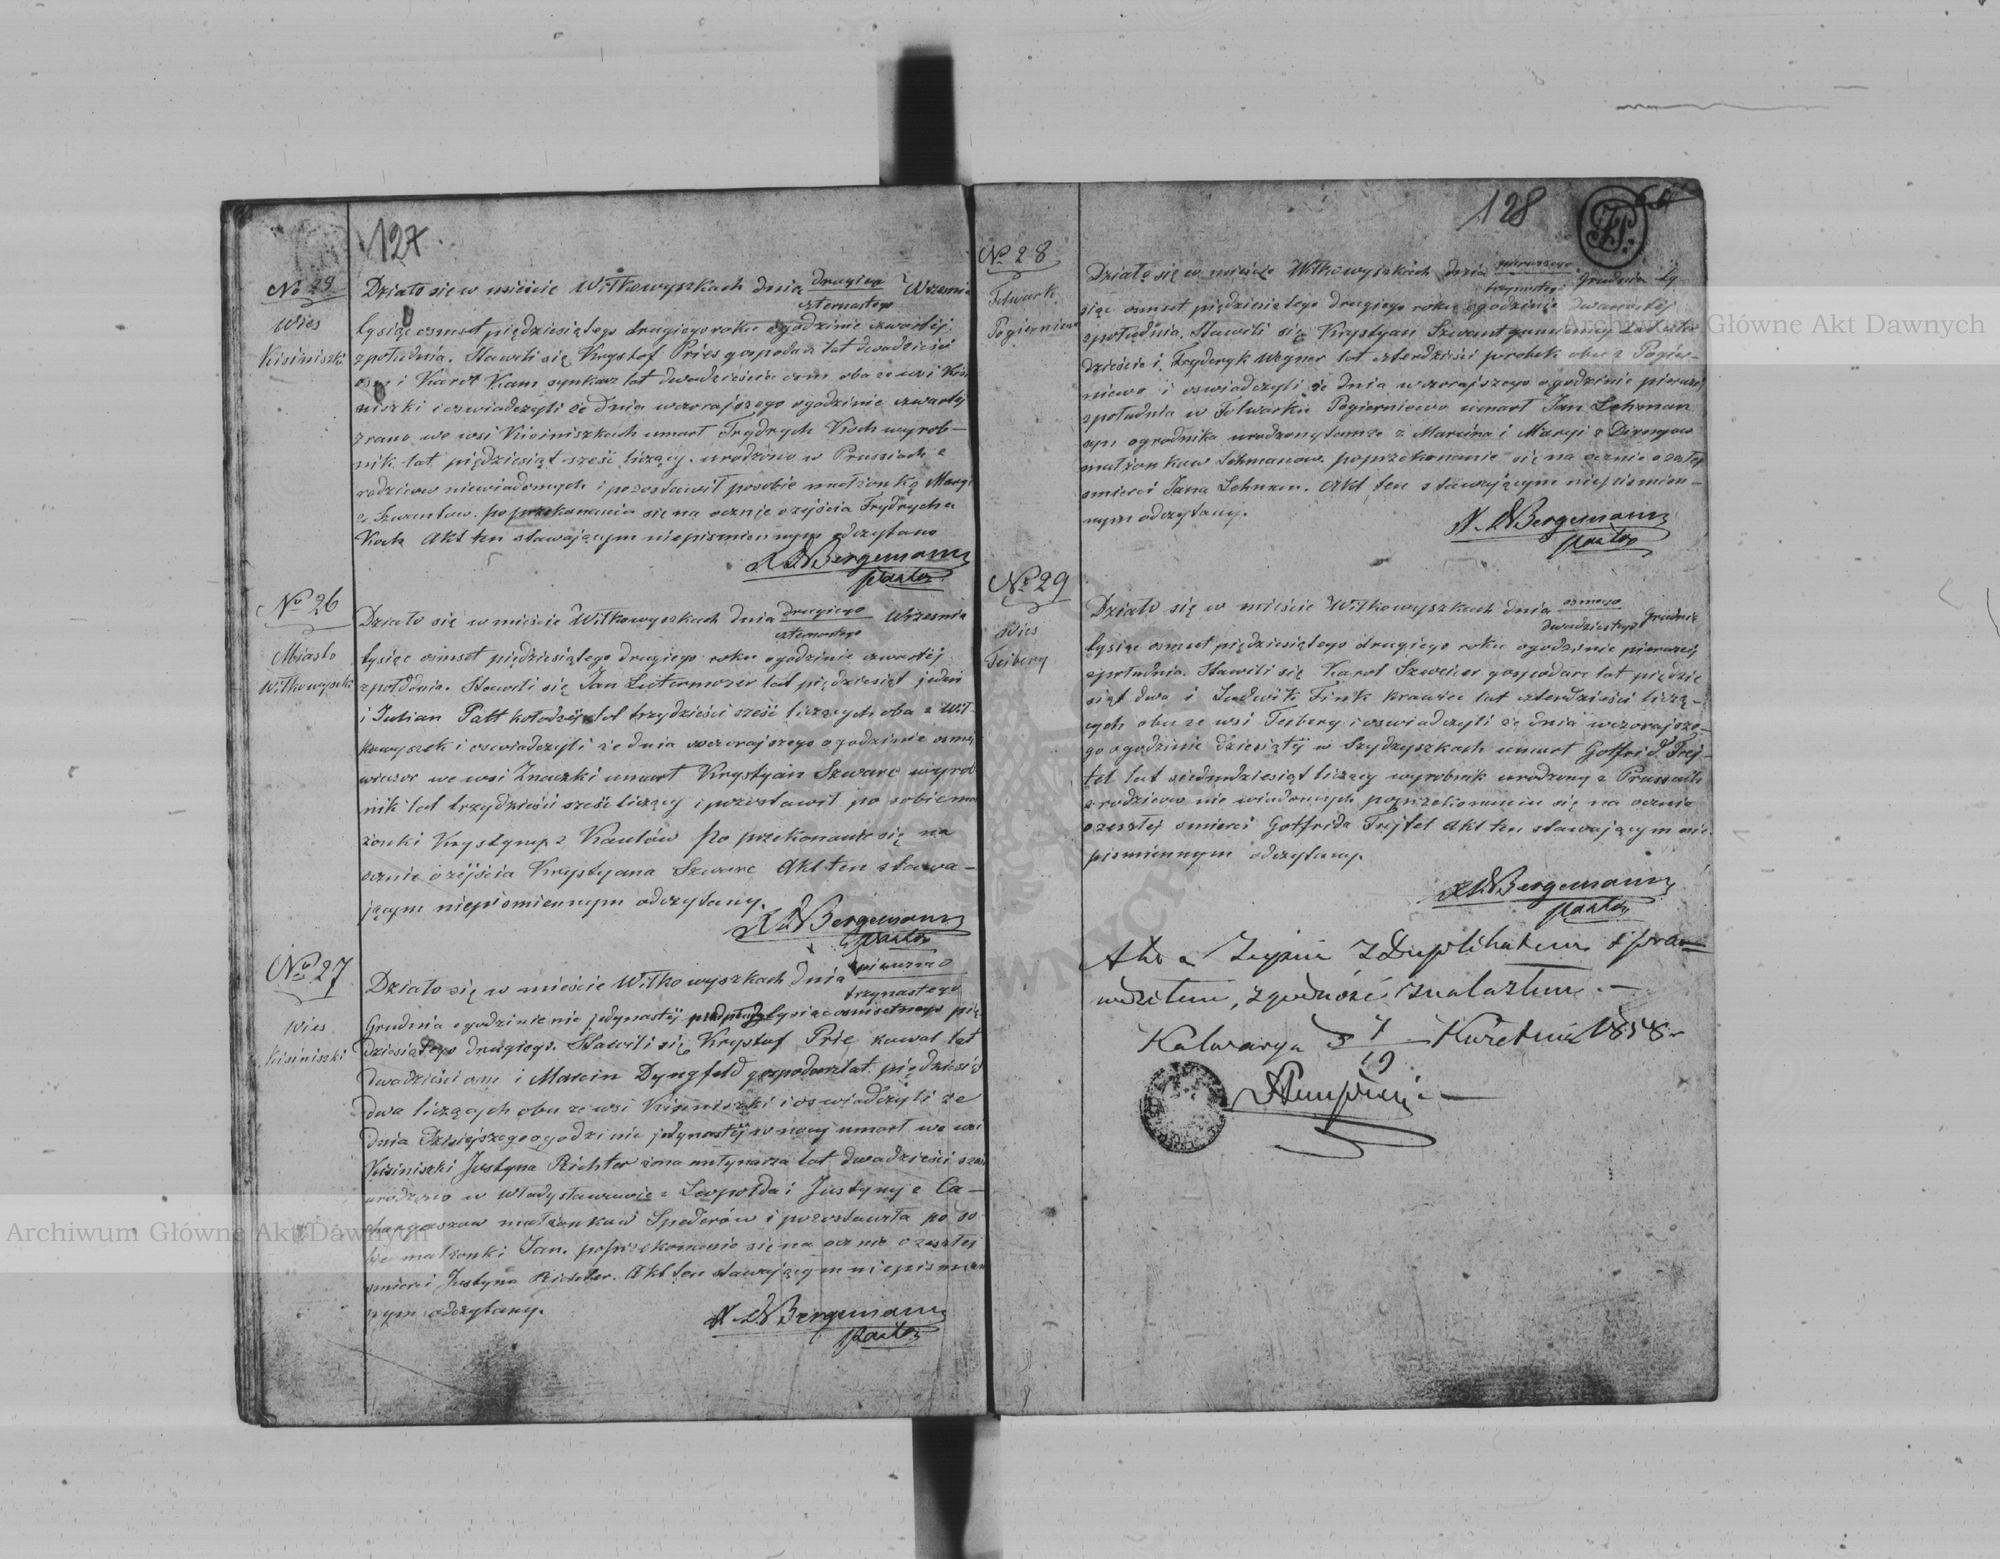 127
No 25
Wies
Kisiniszki
Działo się w mieście Wiłkowyszkach dnia drugiego czternastego Wrzesnia
tysiąc osmset piędziesiątego drugiego roku ogodzinie czwartéj
zpołudnia. Stawili się Krysztof Pries gospodarz lat dwadzieścia
osm i Karol Kam synkarz lat dwadzieścia osm oba ze wsi Kisi
niszki i oswiadczyli że dnia wczorajszego ogodzinie czwartéj
zrana we wsi Kisiniszkach umarł Frydrych Koch wyrob-
nik lat piędziesiąt sześć liczący urodzony w Prusiach z
rodziców niewiadomych i pozostawił posobie małżonkę Maryę
z Szwantów. po przekonaniu się na ocznie ozejścia Frydrycha
Koch Akt ten stawającym niepismiennym odczytano
Bergemann
pastor
No 26
Miasto
Wiłkowyszki
Działo się w mieście Wiłkowyszkach dnia drugiego czternastego Wrzesnia
tysiąc osmset piędziesiątego drugiego roku ogodzinie czwartéj
zpołudnia. Stawili się Jan Lutermozer lat pięćdziesiąt jeden
i Julian Patt kołodziéj lat trzydzieści sześć liczących oba z Wił-
kowyszek i oswiadczyli że dnia wczorajszego ogodzinie osméj
wieczor we wsi Znaczki umarł Krystyan Szwarc wyrob
nik lat trzydzieści sześć liczący i pozostawił po sobie ma
żonki Krystynę z Krautów po przekonaniu się na
ocznie ozéjścia Krystyana Szwarc Akt ten stawa-
jącym niepismiennym odczytany.
Bergemann
pastor
No 27
Wies
Kisiniszki
Działo się w mieście Wiłkowyszkach dnia pierwszego trzynastego
Grudnia ogodzinie jedynastéj tysiąc osmsetnego pię
dziesiątego drugiego. Stawili się Krysztof Prie kowal lat
dwadzieścia osm i Marcin Dyngfeld gospodarz lat pięćdziesiąt
dwa liczących obu ze wsi Kisiniszki i oswiadczyli że
dnia dzisiejszego ogodzinie jedynastéj w nocy umarł we wsi
Kisiniszki Justyna Richter żona młynarza lat dwadzieści sześć
urodzona w Władysławowie z Leopolda i Justyny z Ca-
małżonków Spederów i pozostawiła po so-
bie małżonki Jan. po przekonaniu się na ocznie ozeszłéj
smierci Justyna Richter. Akt ten stawającym niepismien
nym odczytany.
Bergemann
pastor
128
No 28
Folwark
Pogierniewo
Działo się w mieście Wiłkowyszkach dnia pierwszego trzynastego Grudnia ty-
siąc osmset pięćdziesiątego drugiego roku ogodzinie dwunastéj
zpołudnia. Stawili się Krystyan Szwant
dzieście i Frydryk Wegner lat czterdzieści parobek obu z Pogier-
niewo i oswiadczyli że dnia wczorajszego ogodzinie pierwszéj
zpołudnia w Folwarku Pogierniewo umarł Jan Lehman
syn ogrodnika urodzony tamże z Marcina i Maryi z
małżonkow Lehmanow. po przekonaniu się na ocznie ozeszłéj
smierci Jana Lehman. Akt ten stawającym niepismien-
nym odczytany.
Bergemann
pastor
No 29
Wies
Feibery
Działo się w mieście Wiłkowyszkach dnia osmego dwadziestego Grudnia
tysiąc osmset pięćdziesiątego drugiego roku ogodzinie pierwszéj
zpołudnia. Stawili się Karol Szweicer gospodarz lat pięćdzie
siąt dwa i Ludwik Fink krawiec lat czterdzieści liczą-
cych obu ze wsi Feibery i oswiadczyli że dnia wczorajsze-
go ogodzinie dziesiątéj w Szydzyszkach umarł Gottfrid Frej-
tel lat siedmdziesiąt liczący wyrobnik urodzony z Prusach
z rodziców nie wiadomych po przekonaniu się na ocznie
ozeszłéj smierci Gottfrida Frejtel Akt ten stawającym nie
pismiennym odczytany.
Bergemann
pastor
Akta Zejścia z Duplikatem sprawe
wdziłem, zgodność znalazłem.
Kalwarya D 7/19 Kwietnia 1858 r
Archiwum Główne Akt Dawnych
Archiwum Główne Akt Dawnych